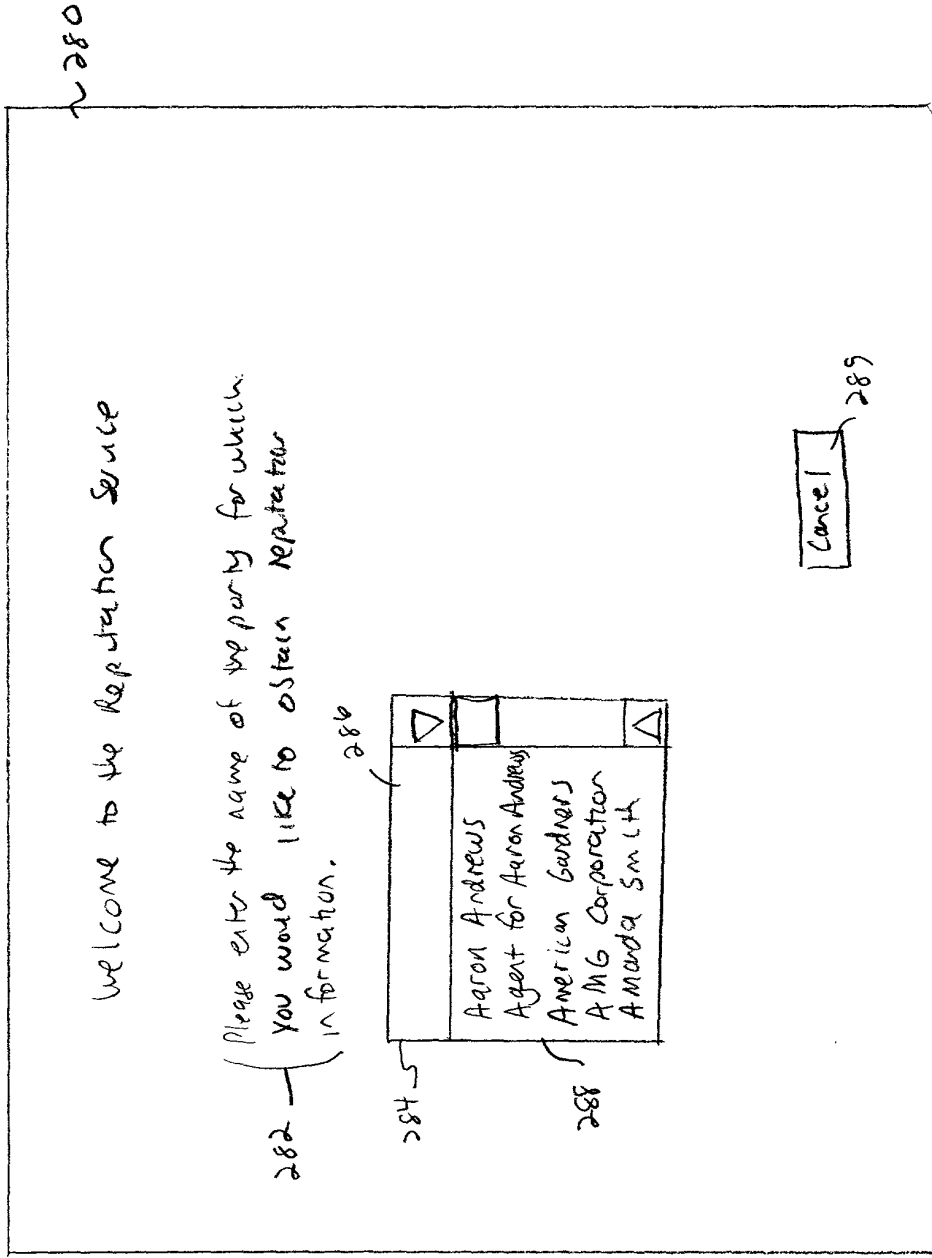 280
Welcome to the Reputation Service
Please enter the name of the party for which
you would like to obtain reputation
information.
282
286
284
Aaron Andrews
Agent for Aaron Andrews
American Gardners
AMG Corporation
Amanda Smith
288
Cancel
289